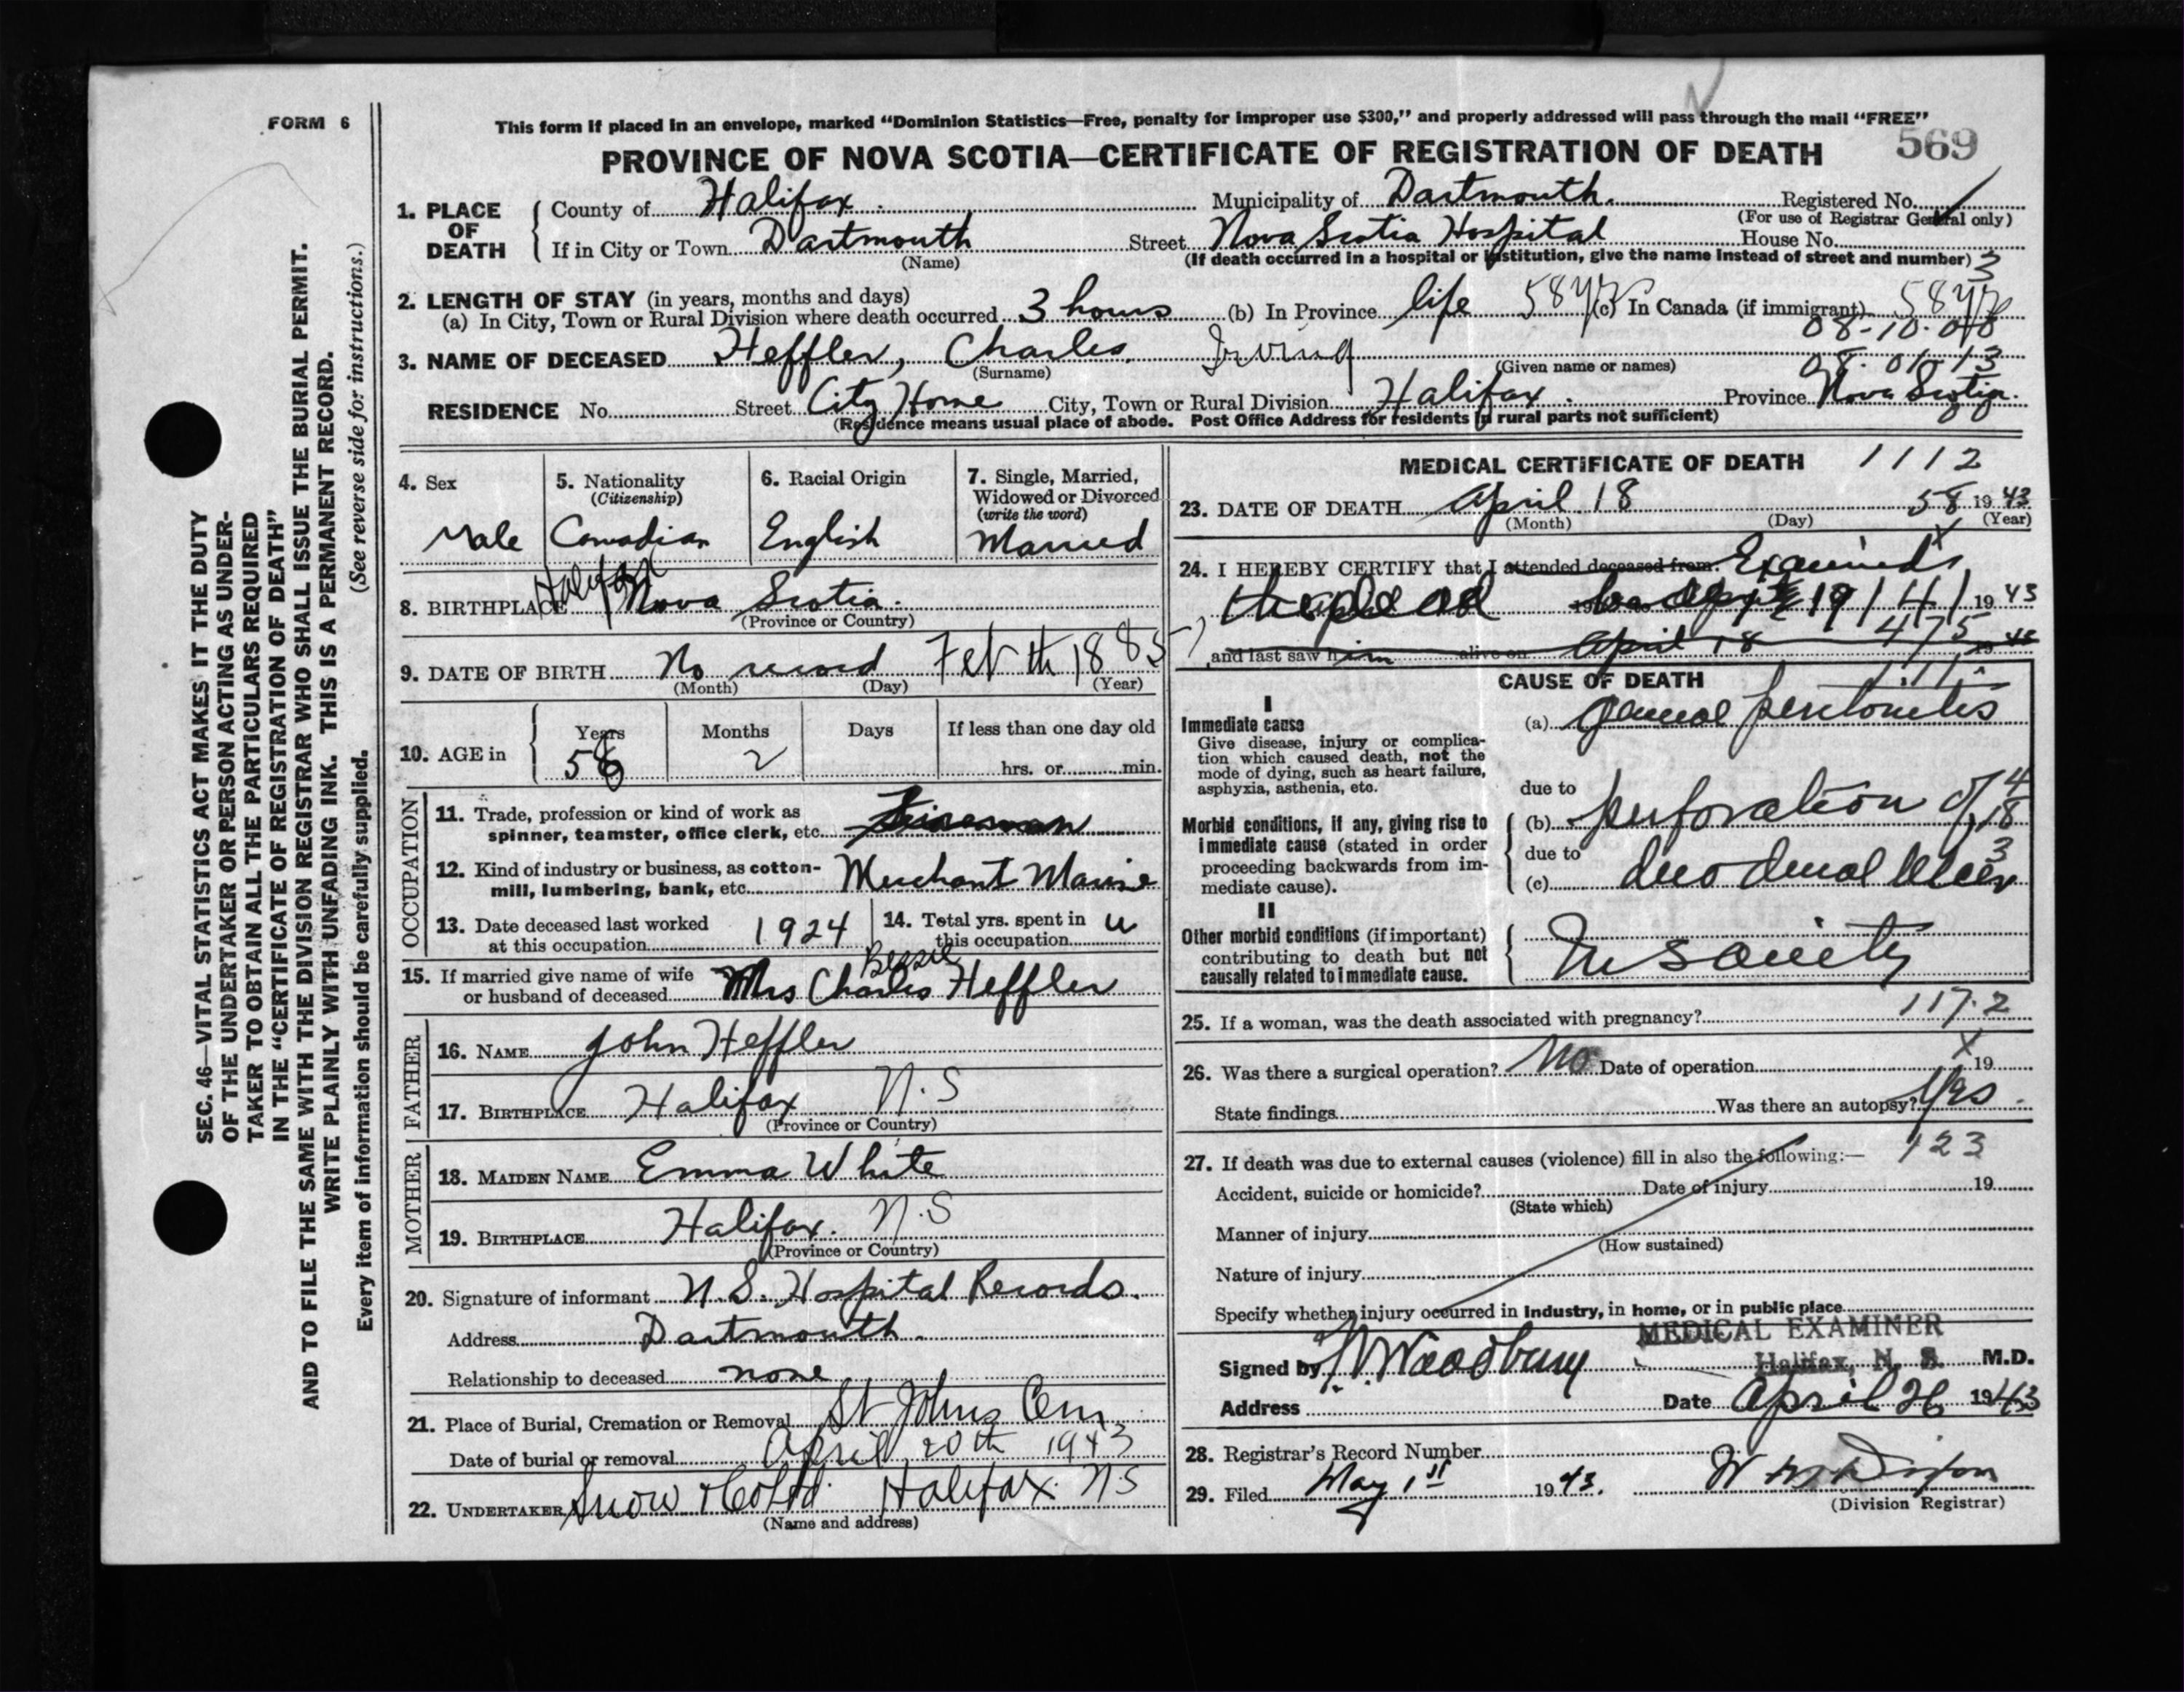 FORM 6
This form if placed in an envelope, marked “Dominion Statistics—Free, penalty for improper use $300,” and properly addressed will pass through the mail “FREE”
PROVINCE OF NOVA SCOTIA—CERTIFICATE OF REGISTRATION OF DEATH 569
1. PLACE OF DEATH
County of Halifax. Municipality of Dartmouth. Registered No.
(For use of Registrar General only)
If in City or Town Dartmouth Street Nova Scotia Hospital House No.
(Name) (If death occurred in a hospital or institution, give the name instead of street and number) 3
2. LENGTH OF STAY (in years, months and days)
(a) In City, Town or Rural Division where death occurred 3 hours (b) In Province life 58 yr (c) In Canada (if immigrant) 58 yr
08-10-
3. NAME OF DECEASED Heffler, Charles. Irving
(Surname) (Given name or names) 08-01-13
RESIDENCE No. Street City Home City, Town or Rural Division Halifax. Province Nova Scotia.
(Residence means usual place of abode. Post Office Address for residents in rural parts not sufficient)
4. Sex
Male
5. Nationality
(Citizenship)
Canadian
6. Racial Origin
English
7. Single, Married,
Widowed or Divorced
(write the word)
Married
8. BIRTHPLACE Halifax Nova Scotia.
(Province or Country)
9. DATE OF BIRTH No record Feb th 1885
(Month) (Day) (Year)
10. AGE in
Years Months Days If less than one day old
58 2 hrs. or min.
OCCUPATION
11. Trade, profession or kind of work as
spinner, teamster, office clerk, etc. Fireman
12. Kind of industry or business, as cotton-
mill, lumbering, bank, etc. Merchant Marine
13. Date deceased last worked
at this occupation 1924
14. Total yrs. spent in
this occupation u
15. If married give name of wife
or husband of deceased Mrs Charles Heffler
Bessie
FATHER
16. NAME John Heffler
17. BIRTHPLACE Halifax N.S
(Province or Country)
MOTHER
18. MAIDEN NAME Emma White
19. BIRTHPLACE Halifax. N.S
(Province or Country)
20. Signature of informant N.S. Hospital Records.
Address Dartmouth.
Relationship to deceased none
21. Place of Burial, Cremation or Removal St Johns Cem.
Date of burial or removal April 20th 1943
22. UNDERTAKER Snow & Co Ltd. Halifax. NS
(Name and address)
MEDICAL CERTIFICATE OF DEATH 1112
23. DATE OF DEATH April 18 58 1943
(Month) (Day) (Year)
24. I HEREBY CERTIFY that I attended deceased from: Examined
1943
and last saw him alive on April 18 475
CAUSE OF DEATH
I
Immediate cause
Give disease, injury or complica-
tion which caused death, not the
mode of dying, such as heart failure,
asphyxia, asthenia, etc.
(a) general peritonitis
due to
Morbid conditions, if any, giving rise to
immediate cause (stated in order
proceeding backwards from im-
mediate cause).
(b) perforation of
due to
(c) duodenal ulcer
II
Other morbid conditions (if important)
contributing to death but not
causally related to immediate cause.
Insanity
117.2
25. If a woman, was the death associated with pregnancy?
26. Was there a surgical operation? No Date of operation 19
State findings Was there an autopsy? Yes.
123
27. If death was due to external causes (violence) fill in also the following:—
Accident, suicide or homicide? Date of injury 19
(State which)
Manner of injury
(How sustained)
Nature of injury
Specify whether injury occurred in industry, in home, or in public place
MEDICAL EXAMINER
Halifax, N. S.
Signed by Woodbury M.D.
Address Date April 26 1943
28. Registrar's Record Number
29. Filed May 1st 1943.
(Division Registrar)
SEC. 46—VITAL STATISTICS ACT MAKES IT THE DUTY
OF THE UNDERTAKER OR PERSON ACTING AS UNDER-
TAKER TO OBTAIN ALL THE PARTICULARS REQUIRED
IN THE “CERTIFICATE OF REGISTRATION OF DEATH”
AND TO FILE THE SAME WITH THE DIVISION REGISTRAR WHO SHALL ISSUE THE BURIAL PERMIT.
WRITE PLAINLY WITH UNFADING INK. THIS IS A PERMANENT RECORD.
(See reverse side for instructions.)
Every item of information should be carefully supplied.